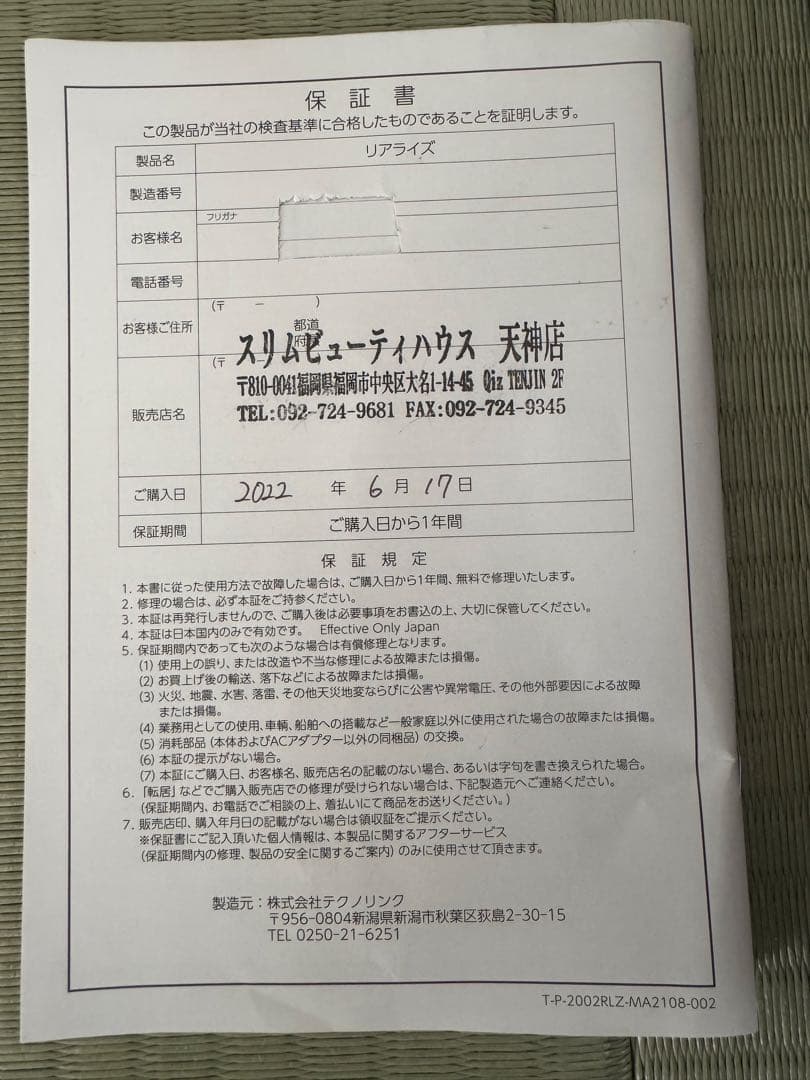 保証書
この製品が当社の検査基準に合格したものであることを証明します。
製品名 リアライズ
製造番号
フリガナ
お客様名
電話番号
お客様ご住所 (〒 － )
都道
府
販売店名 (〒 －
スリムビューティハウス 天神店
〒810-0041福岡県福岡市中央区大名1-14-45 Qiz TENJIN 2F
TEL:092-724-9681 FAX:092-724-9345
ご購入日 2022 年 6 月 17 日
保証期間 ご購入日から1年間
保証規定
1. 本書に従った使用方法で故障した場合は、ご購入日から1年間、無料で修理いたします。
2. 修理の場合は、必ず本証をご持参ください。
3. 本証は再発行しませんので、ご購入後は必要事項をお書込の上、大切に保管してください。
4. 本証は日本国内のみで有効です。 Effective Only Japan
5. 保証期間内であっても次のような場合は有償修理となります。
(1) 使用上の誤り、または改造や不当な修理による故障または損傷。
(2) お買上げ後の輸送、落下などによる故障または損傷。
(3) 火災、地震、水害、落雷、その他天災地変ならびに公害や異常電圧、その他外部要因による故障
または損傷。
(4) 業務用としての使用、車輌、船舶への搭載など一般家庭以外に使用された場合の故障または損傷。
(5) 消耗部品(本体およびACアダプター以外の同梱品)の交換。
(6) 本証の提示がない場合。
(7) 本証にご購入日、お客様名、販売店名の記載のない場合、あるいは字句を書き換えられた場合。
6. 「転居」などでご購入販売店での修理が受けられない場合は、下記製造元へご連絡ください。
(保証期間内、お電話でご相談の上、着払いにて商品をお送りください。)
7. 販売店印、購入年月日の記載がない場合は領収証をご提示ください。
※保証書にご記入頂いた個人情報は、本製品に関するアフターサービス
(保証期間内の修理、製品の安全に関するご案内)のみに使用させて頂きます。
製造元:株式会社テクノリンク
〒956-0804新潟県新潟市秋葉区荻島2-30-15
TEL 0250-21-6251
T-P-2002RLZ-MA2108-002